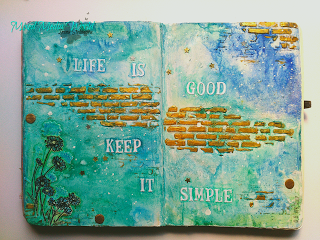 LIFE IS
GOOD
KEEP
IT
SIMPLE